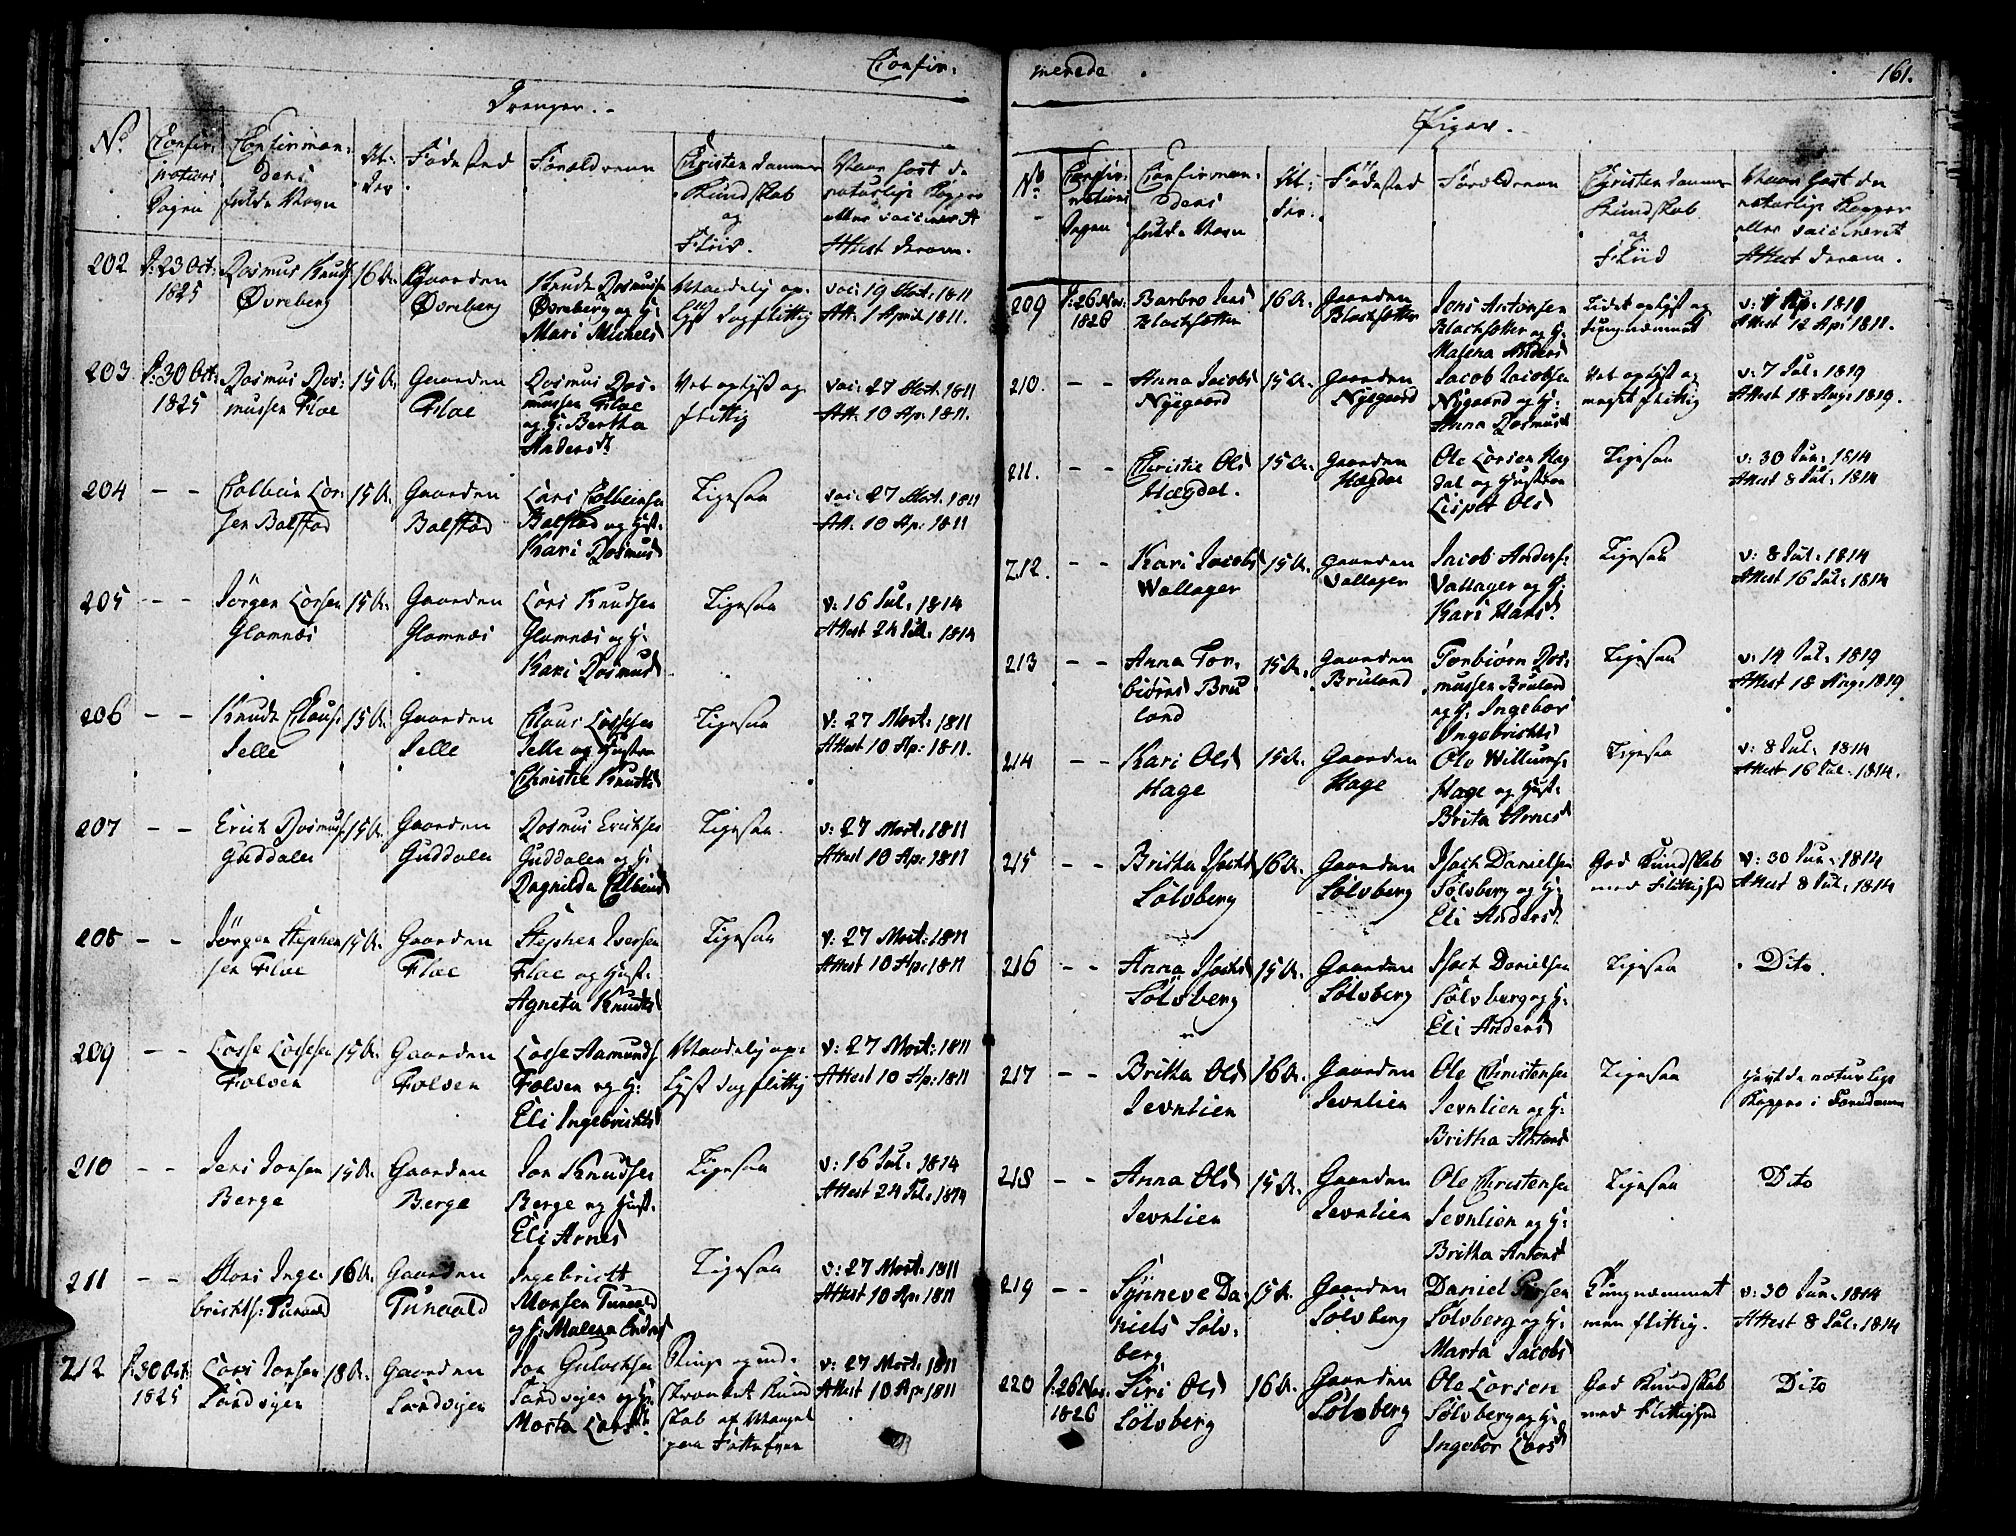 Confir-
Drenger.
No
Confir-
mations
Dagen
Confirman-
dens
fulde Navn
Al-
der
Fødested
Forældrene
Christendommens
Kundskab
og
Fliid.
Naar havt de
naturlige Kopper
eller vaccineret
Attest derom.
202 d: 23 Oct: 1825
Rasmus Knuds:
Øvreberg
16 A.
Gaarden
Øvreberg
Knud Rasmuss:
Øvreberg og H:
Mari Michelsd
Maadelig op-
lyst dog flittig
vac: 19 Mart: 1811
Att: 1 April 1811.
203 d: 30 Oct: 1825
Rasmus Ras-
mussen Floe
15 A.
Gaarden
Floe
Rasmus Ras-
mussen Floe
og H: Bertha
Andersd:
Vel oplyst og
flittig
vac: 27 Mart: 1811
Att: 10 Ap: 1811.
204 - -
Colbein Lar-
sen Bolstad
15 A.
Gaarden
Bolstad
Lars Colbeinsen
Bolstad og Hust:
Kari Rasmusd
Ligesaa
vac: 27 Mart: 1811
Att: 10 Ap: 1811
205 - -
Jørgen Larsen
Glomnæs
15 A.
Gaarden
Glomnæs
Lars Knudsen
Glomnæs og H:
Kari Rasmusd
Ligesaa
v: 16 Jul: 1814
Attest 24 Jul: 1814
206 - -
Knud Claus:
Selle
15 A.
Gaarden
Selle
Claus Lassesen
Selle og Hustru
Christie Knudsd
Ligesaa
v: 27 Mart: 1811
Attest 10 Ap: 1811.
207 - -
Erick Rasmus:
Guddalen
15 A.
Gaarden
Guddalen
Rasmus Ericksen
Guddalen og H:
Ragnilda Colbeinsd
Ligesaa
v: 27 Mart: 1811
Attest 10 Ap: 1811
208 - -
Jørgen Stephen-
sen Floe
15 A.
Gaarden
Floe
Stephen Iversen
Floe og Hust:
Agneta Knudsd
Ligesaa
v: 27 Mart: 1811
Attest 10 Ap: 1811
209 - -
Lasse Lassesen
Folven
15 A.
Gaarden
Folven
Lasse Aamunds:
Folven og H:
Eli Ingebrichtsd
Maadelig op-
lyst dog flittig
v: 27 Mart: 1811
Attest 10 Ap: 1811
210 - -
Jens Jonsen
Berge
15 A.
Gaarden
Berge
Jon Knudsen
Berge og Hust:
Eli Arnesd
Ligesaa
v: 16 Jul: 1814
Attest 24 Jul: 1814
211 - -
Mons Inge-
brichts: Tunold
16 A.
Gaarden
Tunold
Ingebricht
Monsen Tunold
og H: Malena Andersd
Ligesaa
v: 27 Mart: 1811
Attest 10 Ap: 1811
212 d: 30 Oct: 1825
Lars Jonsen
Sandvigen
18 A.
Gaarden
Sandvigen
Jon Gulacksen
Sandvigen og H:
Marta Larsd:
Ringe og ind-
skrænket Kund
skab af Mangel
paa Fatteevne
v: 27 Mart: 1811
Attest 10 Ap: 1811
merede
161.
Piger.
No
Confir-
mations
Dagen
Confirman-
dens
fulde Navn
Al-
der.
Fødested
Forældrene
Christendommens
Kundskab
og
Fliid
Naar havt de
naturlige Kopper
eller vaccineret
Attest derom.
209 d: 26 Nov: 1826
Barbro Jens
Blachsætter
16 A.
Gaarden
Blachsætter
Jens Antonsen
Blachsætter og H:
Malena Andersd
Lidet oplyst og
tungnemmet
Attest 12 Ap: 1811.
210. - -
Anna Jacobs
Nygaard
15 A.
Gaarden
Nygaard
Jacob Jacobsen
Nygaard og H:
Anna Rasmusd
Vel oplyst og
meget flittig
v: 7 Jul: 1819
Attest 18 Aug: 1819.
211. - -
Christie Olsd
Hægdal.
15 A.
Gaarden
Hægdal
Ole Larsen Hæg
dal og Hustrue
Lispet Olsd
Ligesaa
v: 30 Jun: 1814
Attest 8 Jul: 1814
212. - -
Kari Jacobsd
Wallager
15 A.
Gaarden
Vallager
Jacob Anders:
Vallager og H:
Kari Hansd:
Ligesaa
v: 8 Jul: 1814
Attest 16 Jul: 1814
213 - -
Anna Tor-
biørnsd Bru
land
15 A.
Gaarden
Bruland
Torbiørn Ras-
mussen Bruland
og H: Ingebor
Ingebrichtsd
Ligesaa
v: 14 Jul: 1819
Attest 18 Aug: 1819
214 - -
Kari Olsd
Hage
15 A.
Gaarden
Hage
Ole Willums:
Hage og Hust:
Brita Arnesd
Ligesaa
v: 8 Jul: 1814
Attest 16 Jul: 1814.
215 - -
Britha Isachsd
Sølvberg
16 A.
Gaarden
Sølvberg
Isach Danielsen
Sølvberg og H:
Eli Andersd:
God Kundskab
med Flittighed
v: 30 Jun: 1814
Attest 8 Jul: 1814
216 - -
Anna Isachsd
Sølvberg
15 A.
Gaarden
Sølvberg
Isach Danielsen
Sølvberg og H:
Eli Andersd
Ligesaa
Dito.
217 - -
Britha Olsd
Sevnlien
16 A.
Gaarden
Sevnlien
Ole Christensen
Sevnlien og H:
Britha Antonsd
Ligesaa
havt de naturlige
Kopper i Barndommen
218 - -
Anna Olsd
Sevnlien
15 A.
Gaarden
Sevnlien
Ole Christensen
Sevnlien og H:
Britha Antonsd
Ligesaa
Dito
219 - -
Synneve Da-
niels Sølv-
berg
15 A.
Gaarden
Sølvberg
Daniel Persen
Sølvberg og H:
Marta Jacobsd
Tungnemmet
men flittig.
v: 30 Jun: 1814
Attest 8 Jul: 1814
220 d: 26 Nov: 1826
Siri Olsd
Sølvberg
16 A.
Gaarden
Sølvberg
Ole Larsen
Sølvberg og H:
Ingebor Larsd
God Kundskab
med Flittighed
Dito